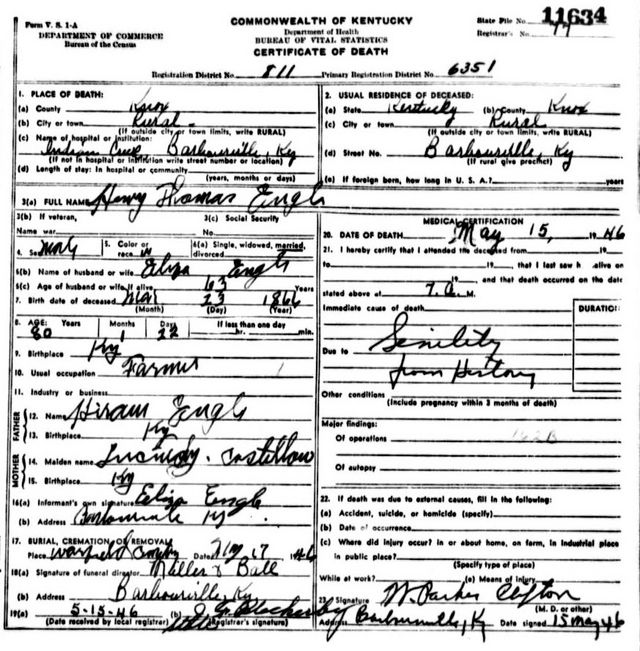 Form V. S. 1-A
DEPARTMENT OF COMMERCE
Bureau of the Census
COMMONWEALTH OF KENTUCKY
Department of Health
BUREAU OF VITAL STATISTICS
CERTIFICATE OF DEATH
State File No. 11634
Registrar's No. 77
Registration District No. 811 Primary Registration District No. 6351
1. PLACE OF DEATH:
(a) County Knox
(b) City or town Rural
(If outside city or town limits, write RURAL)
(c) Name of hospital or institution:
Indian Creek Barbourville, Ky
(If not in hospital or institution write street number or location)
(d) Length of stay: In hospital or community
(years, months or days)
2. USUAL RESIDENCE OF DECEASED:
(a) State Kentucky (b) County Knox
(c) City or town Rural
(If outside city or town limits, write RURAL)
(d) Street No. Barbourville, Ky
(If rural give precinct)
(e) If foreign born, how long in U. S. A.? years
3(a) FULL NAME Henry Thomas Engle
3(b) If veteran, 3(c) Social Security
Name war No.
4. Sex Male 5. Color or race W 6(a) Single, widowed, married, divorced
6(b) Name of husband or wife Eliza Engle
6(c) Age of husband or wife if alive 63 Years
7. Birth date of deceased Mar 23 1866
(Month) (Day) (Year)
8. AGE: Years Months Days If less than one day
80 1 22 hr. min.
9. Birthplace Ky
10. Usual occupation Farmer
11. Industry or business
FATHER
12. Name Hiram Engle
13. Birthplace Ky
MOTHER
14. Maiden name Costellow
15. Birthplace Ky
16(a) Informant's own signature Eliza Engle
(b) Address Barbourville Ky
17. BURIAL, CREMATION OR REMOVAL
Place Warfield Cemetery Date May 17 1946
18(a) Signature of funeral director Miller & Ball
(b) Address Barbourville, Ky
19(a) 5-15-46 (b)
(Date received by local registrar) (Registrar's signature)
MEDICAL CERTIFICATION
20. DATE OF DEATH May 15, 1946
21. I hereby certify that I attended the deceased from 19
to 19 , that I last saw h alive on
19 , and that death occurred on the date
stated above at 7 a. M.
Immediate cause of death
DURATION:
Senility
Due to from History
Other conditions
(Include pregnancy within 3 months of death)
Major findings:
Of operations 162B
Of autopsy
22. If death was due to external causes, fill in the following:
(a) Accident, suicide, or homicide (specify)
(b) Date of occurrence
(c) Where did injury occur? in or about home, on farm, in industrial place
in public place?
(Specify type of place)
While at work? (e) Means of injury
23. Signature W. Parker Clifton
(M. D. or other)
Address Barbourville, Ky Date signed 15 May 46